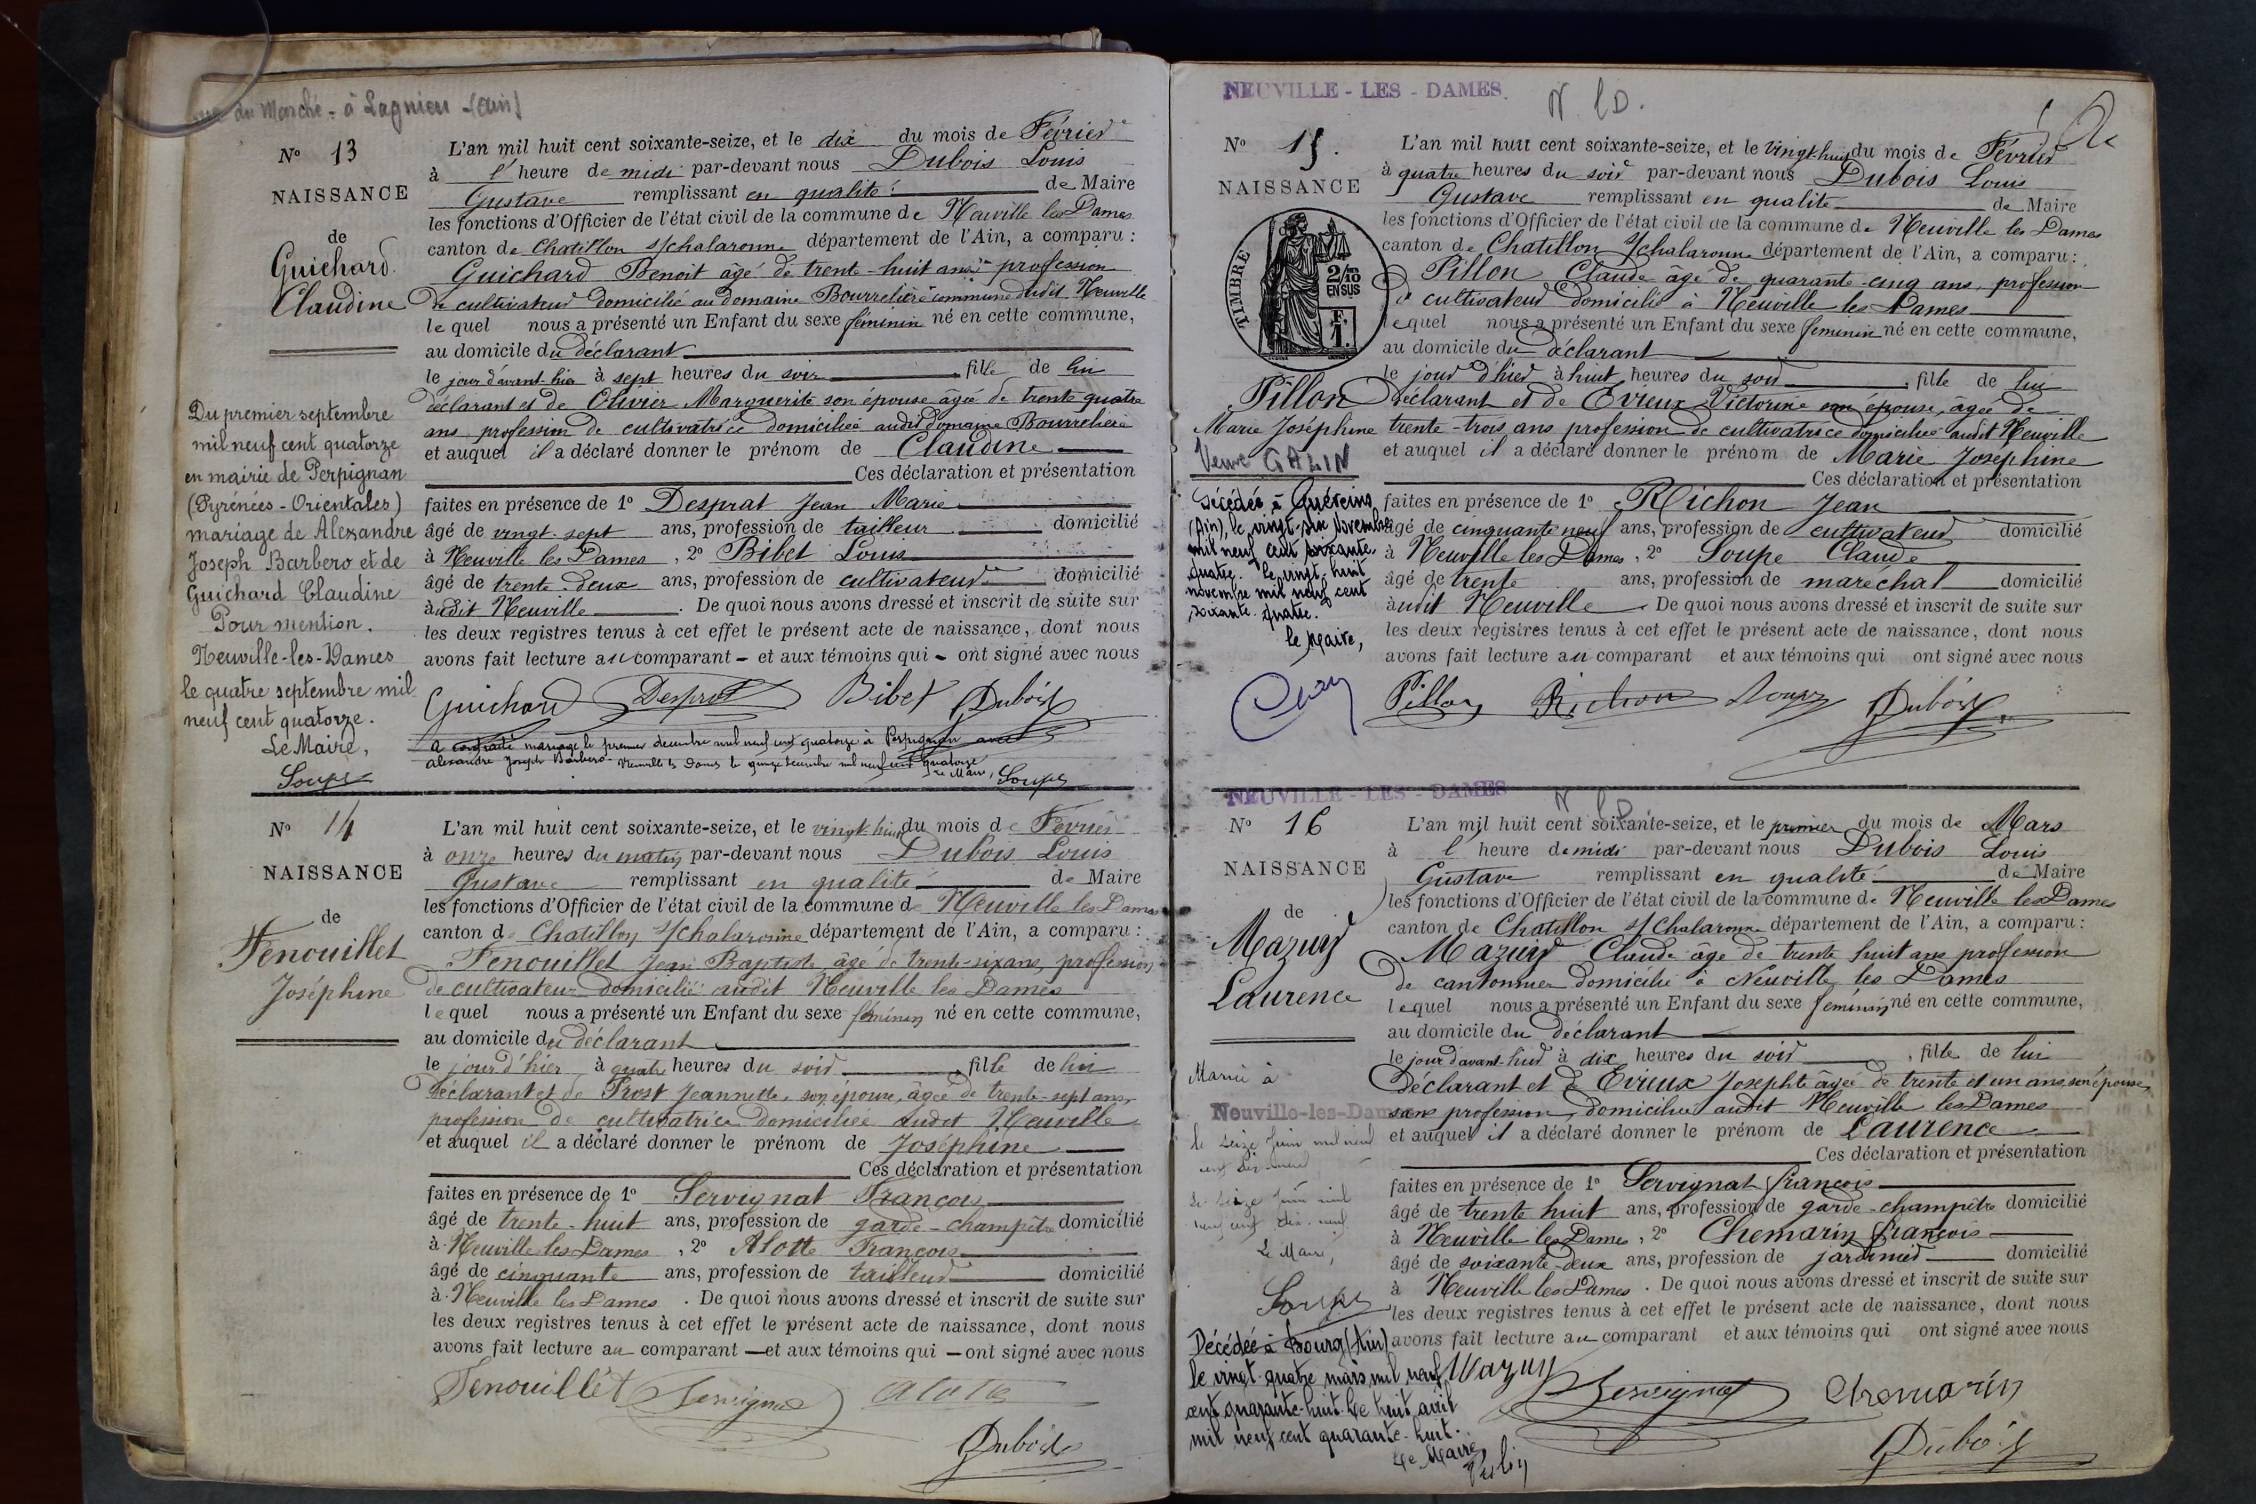 rue du Marché - à Lagnieu - (Ain)
N° 13
NAISSANCE
de
Guichard
Claudine
L'an mil huit cent soixante-seize, et le dix du mois de Février
à l' heure de midi par-devant nous Dubois Louis
Gustave remplissant en qualité de Maire
les fonctions d'Officier de l'état civil de la commune de Neuville les Dames
canton de Chatillon s/chalaronne département de l'Ain, a comparu :
Guichard Benoit âgé de trente-huit ans, profession
de cultivateur domicilié au domaine Bourrelière commune dudit Neuville
lequel nous a présenté un Enfant du sexe féminin né en cette commune,
au domicile du déclarant
le jour d'avant-hier à sept heures du soir fille de lui
déclarant et de Olivier Marguerite son épouse âgée de trente quatre
ans profession de cultivatrice domiciliée audit domaine Bourrelière
et auquel il a déclaré donner le prénom de Claudine
Ces déclaration et présentation
faites en présence de 1° Desprat Jean Marie
âgé de vingt-sept ans, profession de tailleur domicilié
à Neuville les Dames, 2° Bibet Louis
âgé de trente-deux ans, profession de cultivateur domicilié
audit Neuville. De quoi nous avons dressé et inscrit de suite sur
les deux registres tenus à cet effet le présent acte de naissance, dont nous
avons fait lecture au comparant - et aux témoins qui - ont signé avec nous
Guichard Desprat Bibet Dubois
a contracté mariage le premier decembre mil neuf cent quatorze à Perpignan avec
Alexandre Joseph Barbero - Neuville les Dames le quinze decembre mil neuf cent quatorze
Le Maire, Soupe
Du premier septembre
mil neuf cent quatorze
en mairie de Perpignan
(Pyrénées-Orientales)
mariage de Alexandre
Joseph Barbero et de
Guichard Claudine
Pour mention.
Neuville-les-Dames
le quatre septembre mil
neuf cent quatorze.
Le Maire,
Soupe
N° 14
NAISSANCE
de
Fenouillet
Joséphine
L'an mil huit cent soixante-seize, et le vingt-huit du mois de Février
à onze heures du matin par-devant nous Dubois Louis
Gustave remplissant en qualité de Maire
les fonctions d'Officier de l'état civil de la commune de Neuville les Dames
canton de Chatillon s/chalaronne département de l'Ain, a comparu :
Fenouillet Jean Baptiste âgé de trente-six ans, profession
de cultivateur domicilié audit Neuville les Dames
lequel nous a présenté un Enfant du sexe féminin né en cette commune,
au domicile du déclarant
le jour d'hier à quatre heures du soir, fille de lui
déclarant et de Prost Jeannette, son épouse, âgée de trente-sept ans,
profession de cultivatrice domiciliée audit Neuville
et auquel il a déclaré donner le prénom de Joséphine
Ces déclaration et présentation
faites en présence de 1° Servignat François
âgé de trente-huit ans, profession de garde-champêtre domicilié
à Neuville les Dames, 2° Alotte François
âgé de cinquante ans, profession de tailleur domicilié
à Neuville les Dames. De quoi nous avons dressé et inscrit de suite sur
les deux registres tenus à cet effet le présent acte de naissance, dont nous
avons fait lecture au comparant — et aux témoins qui — ont signé avec nous
Fenouillet Servignat Alotte
Dubois
NEUVILLE - LES - DAMES.
N l D.
N° 15.
NAISSANCE
TIMBRE
2/10
EN SUS
F.
1.
Pillon
Marie Joséphine
Veuve GALIN
L'an mil huit cent soixante-seize, et le vingt-huit du mois de Février
à quatre heures du soir par-devant nous Dubois Louis
Gustave remplissant en qualité de Maire
les fonctions d'Officier de l'état civil de la commune de Neuville les Dames
canton de Chatillon s/chalaronne département de l'Ain, a comparu :
Pillon Claude âgé de quarante-cinq ans, profession
de cultivateur domicilié à Neuville les Dames
lequel nous a présenté un Enfant du sexe féminin né en cette commune,
au domicile du déclarant
le jour d'hier à huit heures du soir, fille de lui
déclarant et de Evieux Victorine son épouse, âgée de
trente-trois ans profession de cultivatrice domiciliée audit Neuville
et auquel il a déclaré donner le prénom de Marie Joséphine
Ces déclaration et présentation
faites en présence de 1° Richon Jean
âgé de cinquante neuf ans, profession de cultivateur domicilié
à Neuville les Dames, 2° Soupe Claude
âgé de trente ans, profession de marechal domicilié
audit Neuville. De quoi nous avons dressé et inscrit de suite sur
les deux registres tenus à cet effet le présent acte de naissance, dont nous
avons fait lecture au comparant et aux témoins qui ont signé avec nous
Pillon Richon Soupe Dubois
Décédée à Guéreins
(Ain), le vingt-six novembre
mil neuf cent soixante-
quatre. Le vingt-huit
novembre mil neuf cent
soixante-quatre.
Le Maire,
NEUVILLE - LES - DAMES
N l D
N° 16
NAISSANCE
de
Mazuy
Laurence
L'an mil huit cent soixante-seize, et le premier du mois de Mars
à l' heure de midi par-devant nous Dubois Louis
Gustave remplissant en qualité de Maire
les fonctions d'Officier de l'état civil de la commune de Neuville les Dames
canton de Chatillon s/Chalaronne département de l'Ain, a comparu :
Mazuy Claude âgé de trente huit ans profession
de cantonnier domicilié à Neuville les Dames
lequel nous a présenté un Enfant du sexe féminin né en cette commune,
au domicile du déclarant
le jour d'avant-hier à dix heures du soir, fille de lui
déclarant et de Evieux Josephte âgée de trente et un ans son épouse,
sans profession, domiciliée audit Neuville les Dames
et auquel il a déclaré donner le prénom de Laurence
Ces déclaration et présentation
faites en présence de 1° Servignat françois
âgé de trente huit ans, profession de garde-champêtre domicilié
à Neuville les Dames, 2° Chemarin françois
âgé de soixante-deux ans, profession de jardinier domicilié
à Neuville les Dames. De quoi nous avons dressé et inscrit de suite sur
les deux registres tenus à cet effet le présent acte de naissance, dont nous
avons fait lecture au comparant et aux témoins qui ont signé avec nous
Mazuy Servignat Chemarin
Dubois
Marié à
Neuville-les-Dames
le seize juin mil neuf
cent dix-neuf
Le seize juin mil
neuf cent dix-neuf
Le Maire,
Soupe
Décédée à Bourg (Ain)
le vingt quatre mars mil neuf
cent quarante-huit. Le huit avril
mil neuf cent quarante-huit.
Le Maire,